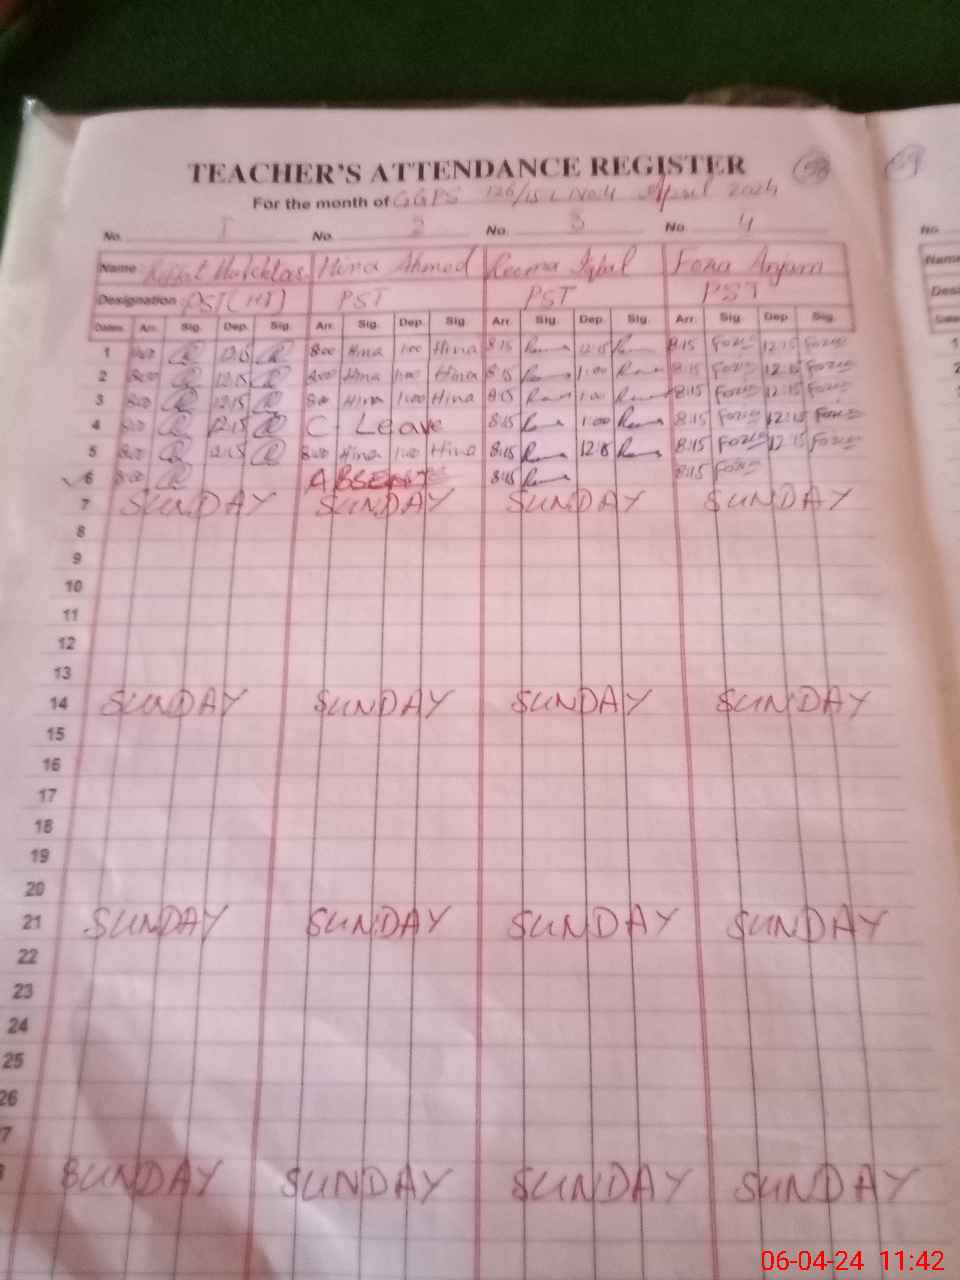 TEACHER'S ATTENDANCE REGISTER 58 59
For the month of GGPS 126/15 L April 2024
No. 1 No. 2 No. 3 No. 4 No.
Name Mukhtar Hina Ahmed Reema Iqbal Fozia Anjum Name
Designation PST (HT) PST PST PST
Dates Arr. Sig. Dep. Sig. Arr. Sig. Dep. Sig. Arr. Sig. Dep. Sig. Arr. Sig. Dep. Sig.
1 8:00 12:15 8:00 Hina 1:00 Hina 8:15 12:15 8:15 Fozia 12:15 Fozia
2 8:00 12:15 8:00 Hina 1:00 Hina 8:15 1:00 8:15 Fozia 12:15 Fozia
3 8:00 12:15 8:00 Hina 1:00 Hina 8:15 1:00 8:15 Fozia 12:15 Fozia
4 8:00 12:15 C Leave 8:15 1:00 8:15 Fozia 12:15 Fozia
5 8:00 12:15 8:00 Hina 1:00 Hina 8:15 12:15 8:15 Fozia 12:15 Fozia
6 8:00 ABSENT 8:15 8:15 Fozia
7 SUNDAY SUNDAY SUNDAY SUNDAY
8
9
10
11
12
13
14 SUNDAY SUNDAY SUNDAY SUNDAY
15
16
17
18
19
20
21 SUNDAY SUNDAY SUNDAY SUNDAY
22
23
24
25
26
7
SUNDAY SUNDAY SUNDAY SUNDAY
06-04-24 11:42